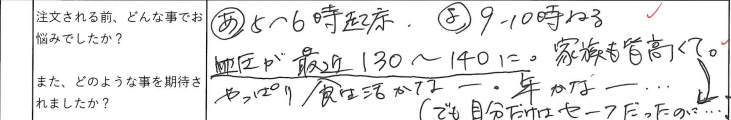 注文される前、どんな事でお
悩みでしたか？
また、どのような事を期待さ
れましたか？
あ 5〜6時起床. よ 9-10時ねる
血圧が最近130〜140に。家族も皆高くて。
やっぱり食生活かなー。年かなー…
(でも自分だけはセーフだったのに…